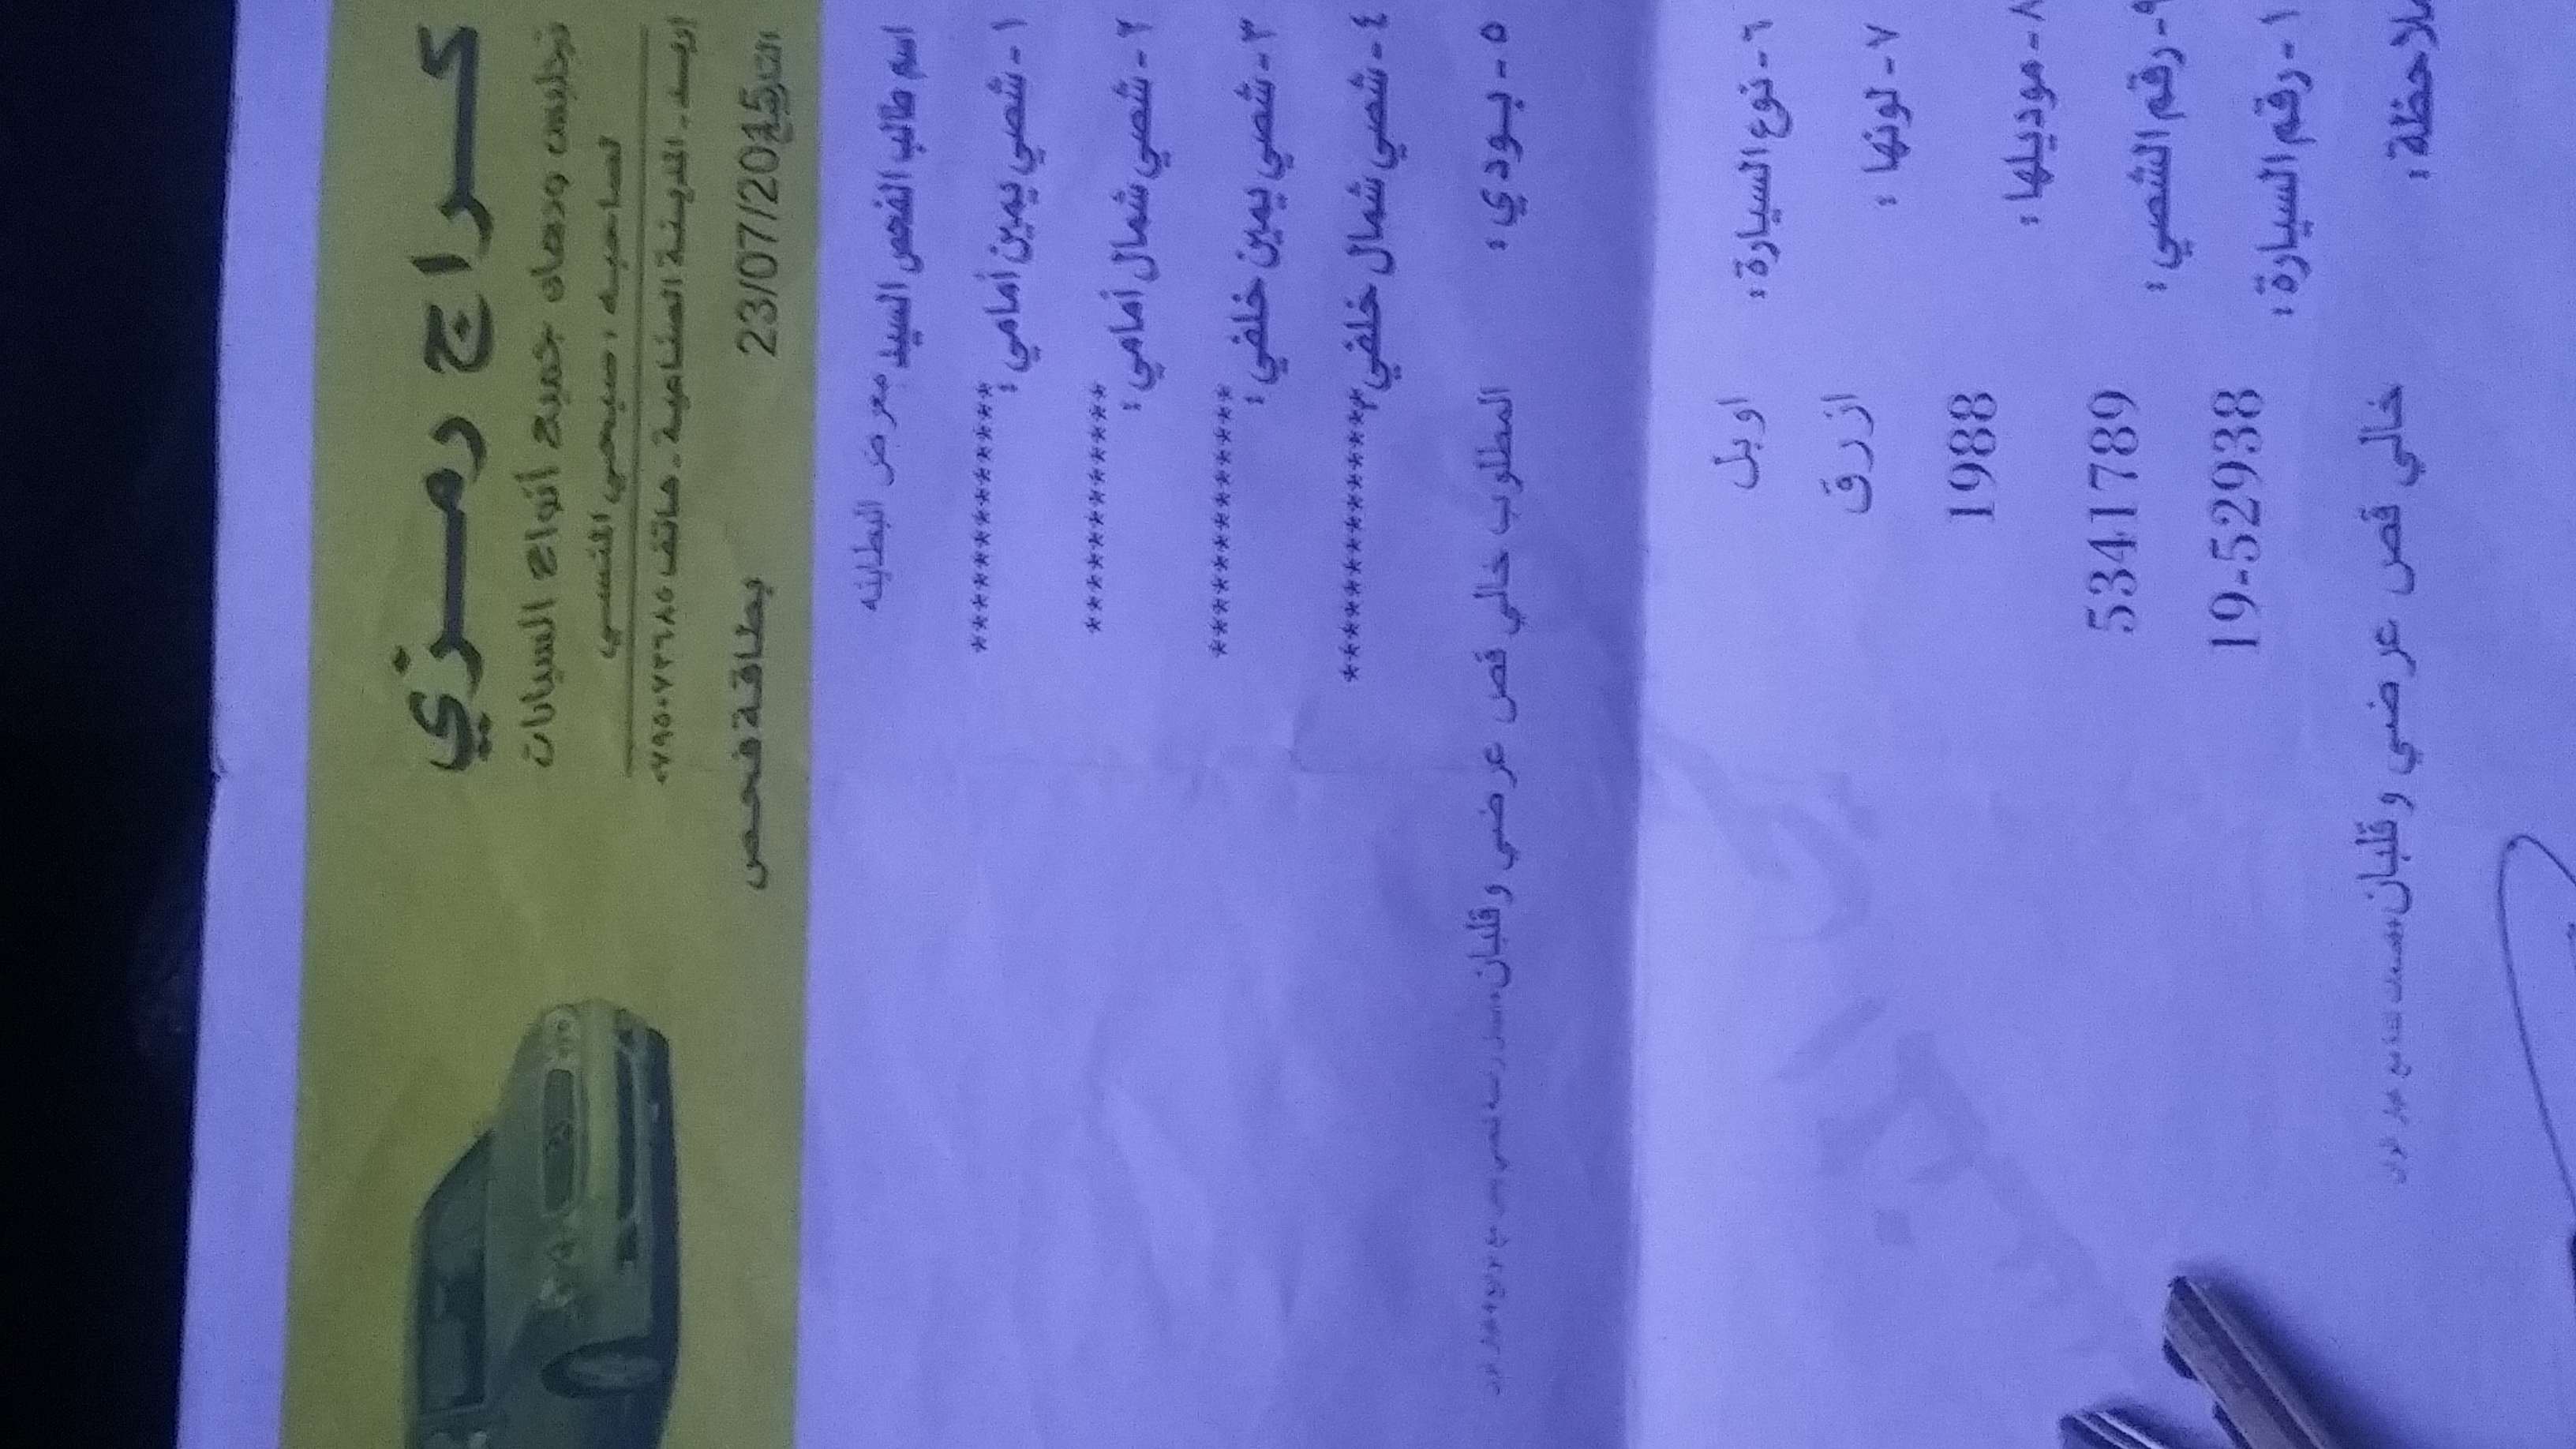 كراج رمزي
تجليس ودهان جميع أنواع السيارات
لصاحبه : صبحي القيسي
اربد - المدينة الصناعية - هاتف ٠٧٩٥٠٧٣٦٨٨٥
التاريخ 23/07/2015
بطاقة فحص
اسم طالب الفحص السيد معرض البطاينه
١ - شصي يمين أمامي : **************
٢ - شصي شمال أمامي : *************
٣ - شصي يمين خلفي : **************
٤ - شصي شمال خلفي : **************
٥ - بودي : المطلوب خالي قص عرضي وقلبان
٦ - نوع السيارة : اوبل
٧ - لونها : ازرق
٨ - موديلها : 1988
٩ - رقم الشصي : 5341789
١ - رقم السيارة : 19-52938
ملاحظة : خالي قص عرضي وقلبان